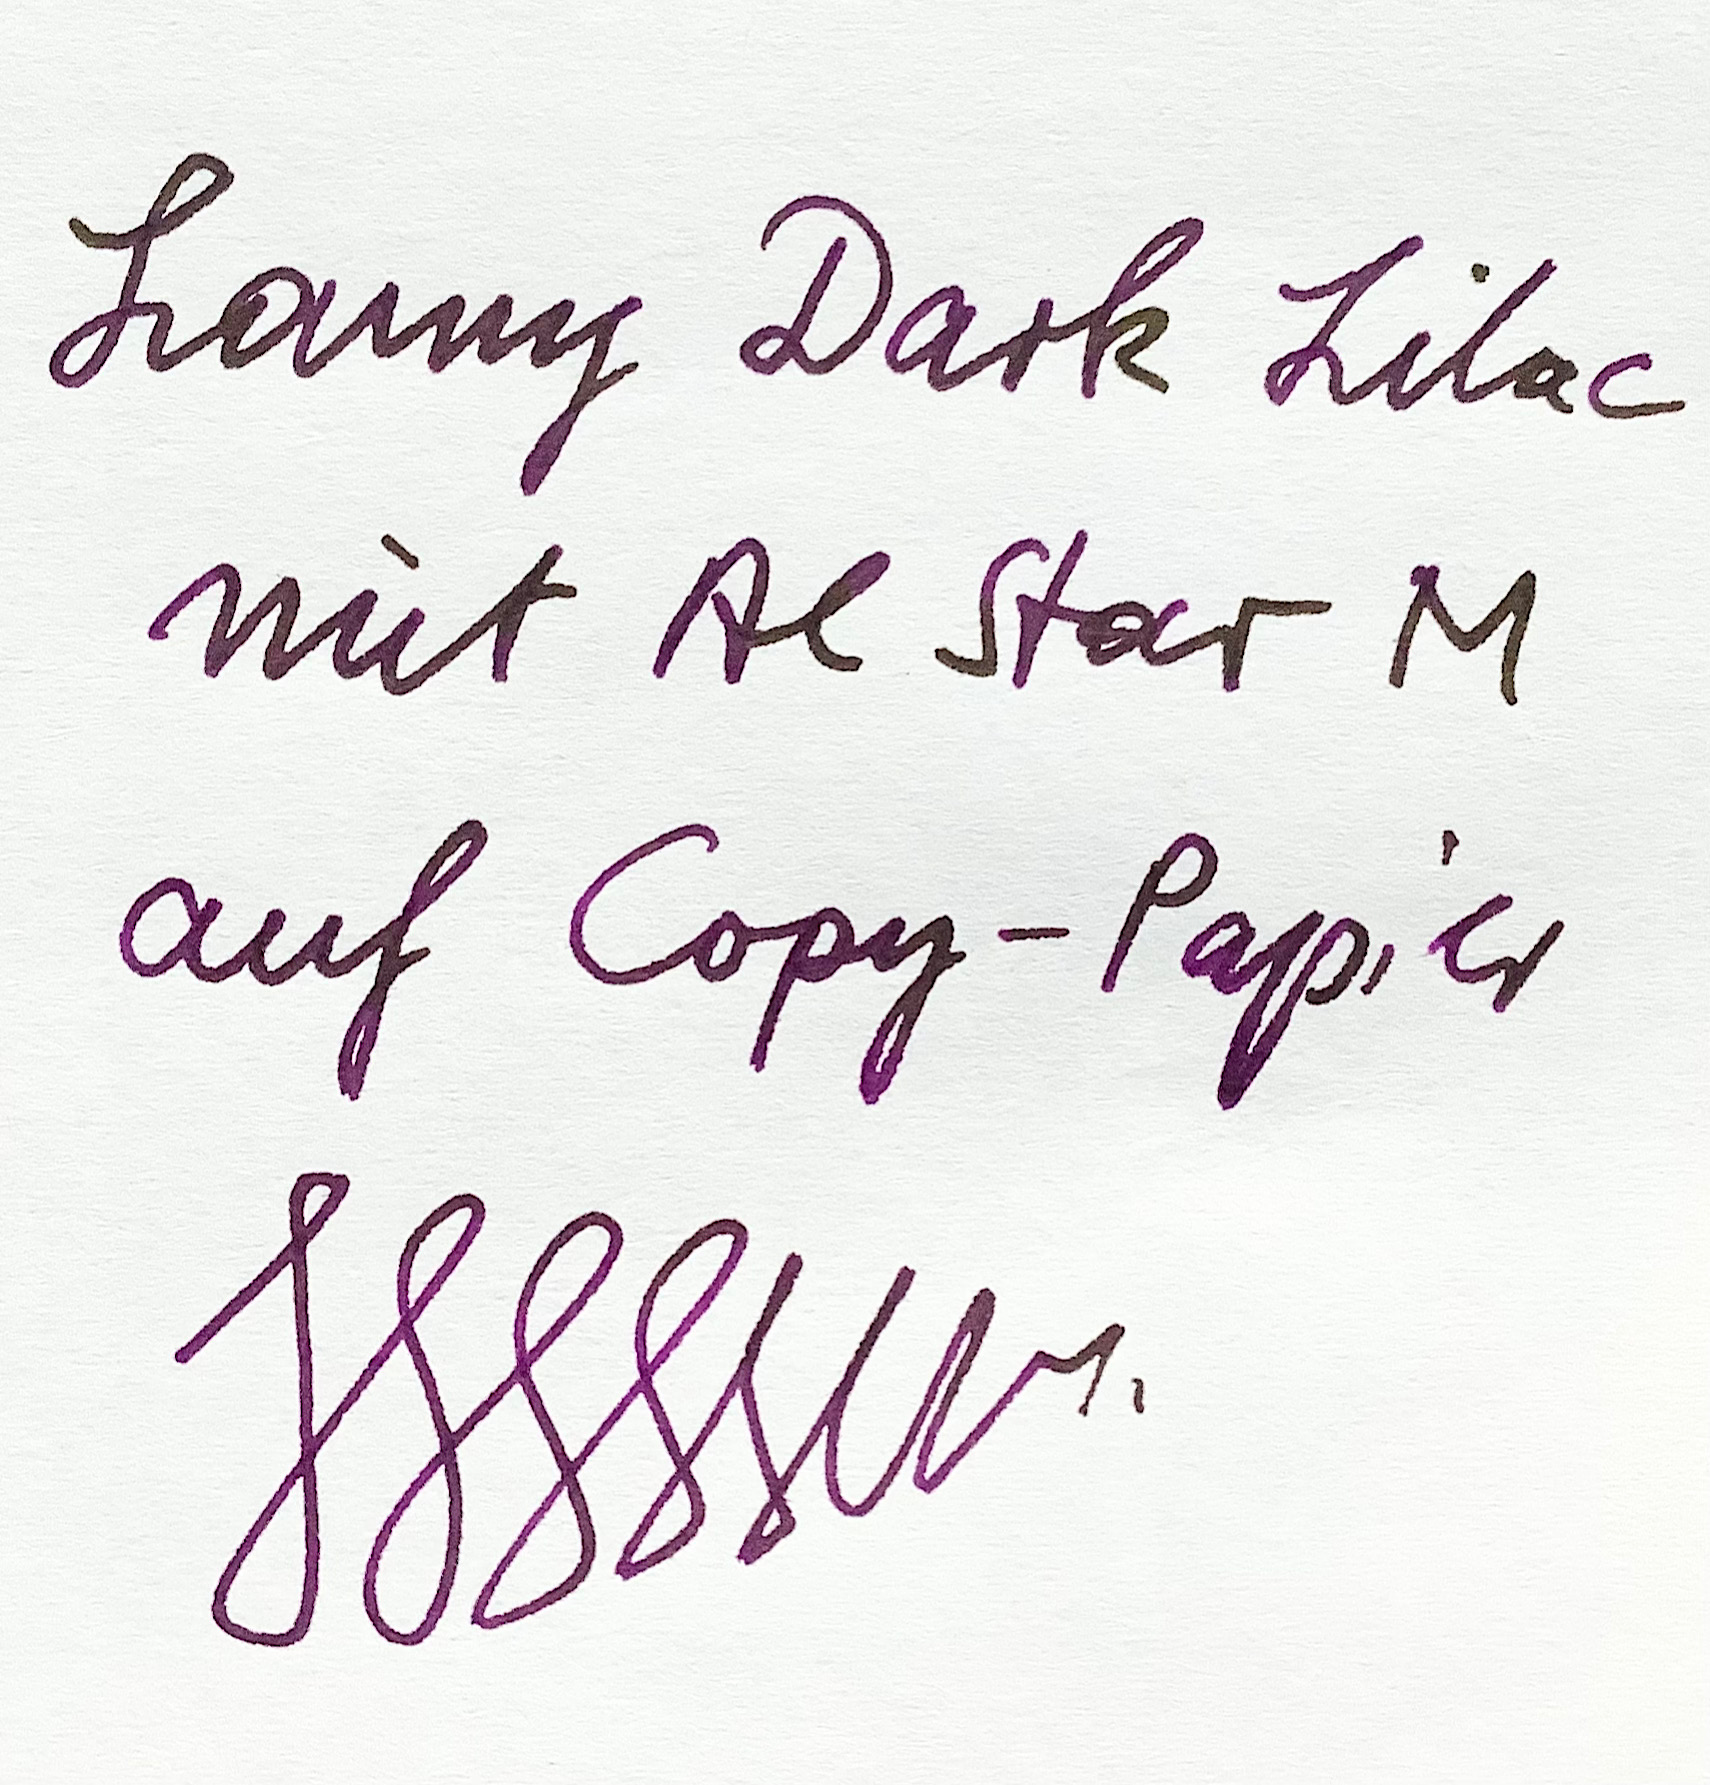 Lamy Dark Lilac
mit Al Star M
auf Copy-Papier